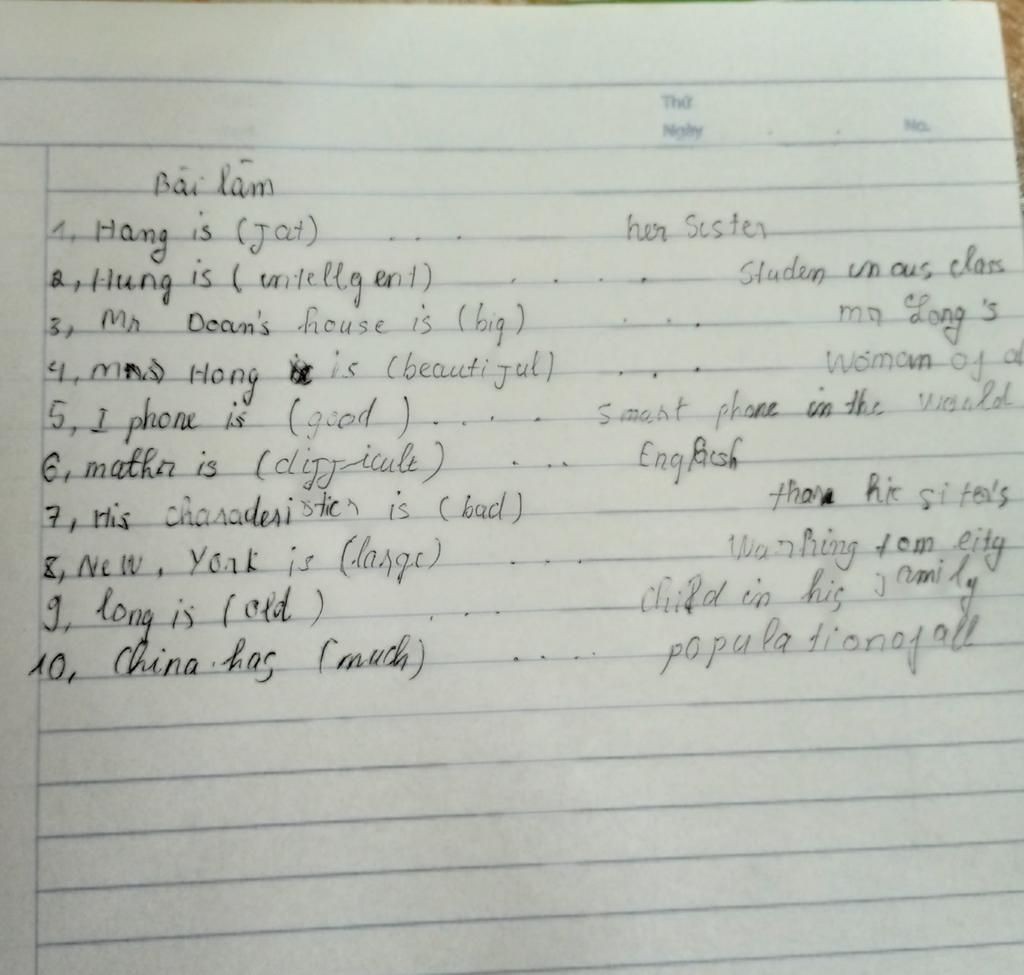 Thứ
Ngày No.
Bài làm
1, Hang is (fat) .... her Sister
2, Hung is (intellgent) .... Studen in ous class
3, Mr Doan's house is (big) ... mr Long's
4, Hong is (beautiful) ... woman of al
5, I phone is (good) .... Smart phone in the would
6, mathr is (difficult) .... English
7, His is (bad) than his siter's
8, New, York is (large) ... city
9, long is (old) ... child in his family
10, China has (much) .... population of all